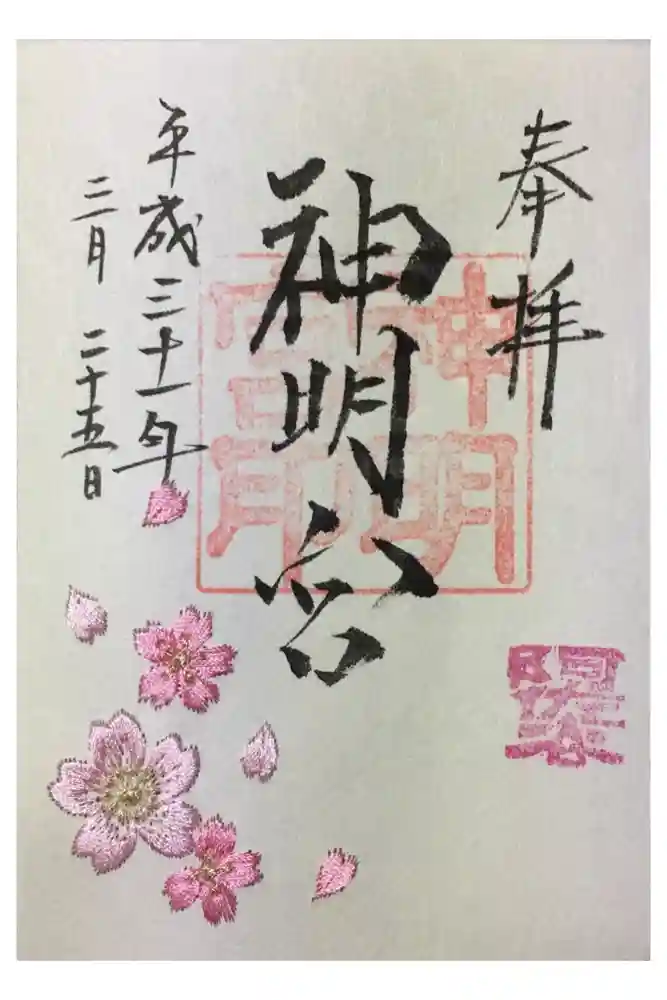 奉拝
神明宮
平成三十一年
三月二十五日
神明宮印